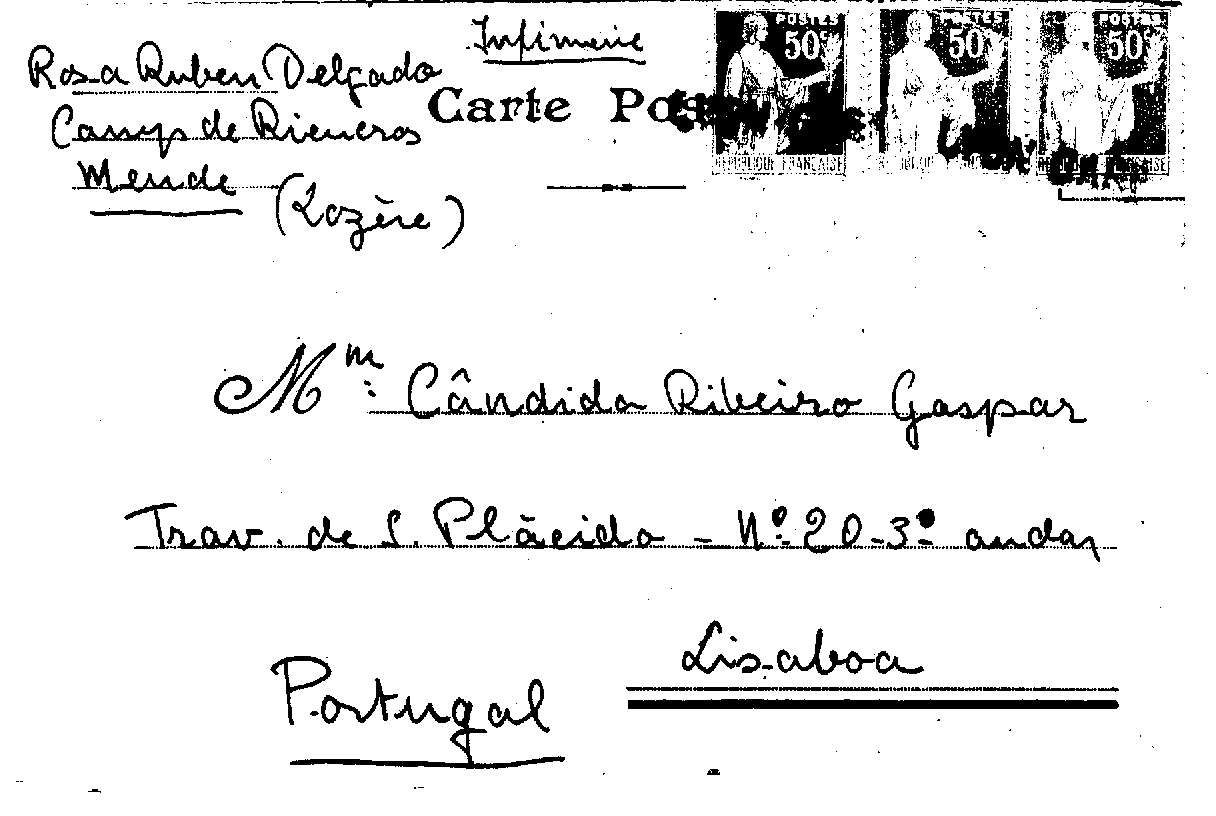 Infirmerie
Rosa Ruben Delgado
Camp de Rieucros
Mende
(Lozère)
Carte Pos
POSTES POSTES POSTES
50c 50c 50c
RÉPUBLIQUE FRANÇAISE RÉPUBLIQUE FRANÇAISE RÉPUBLIQUE FRANÇAISE
Mm: Cândida Ribeiro Gaspar
Trav. de S. Plácido - Nº 20-3º andar
Lisaboa
Portugal